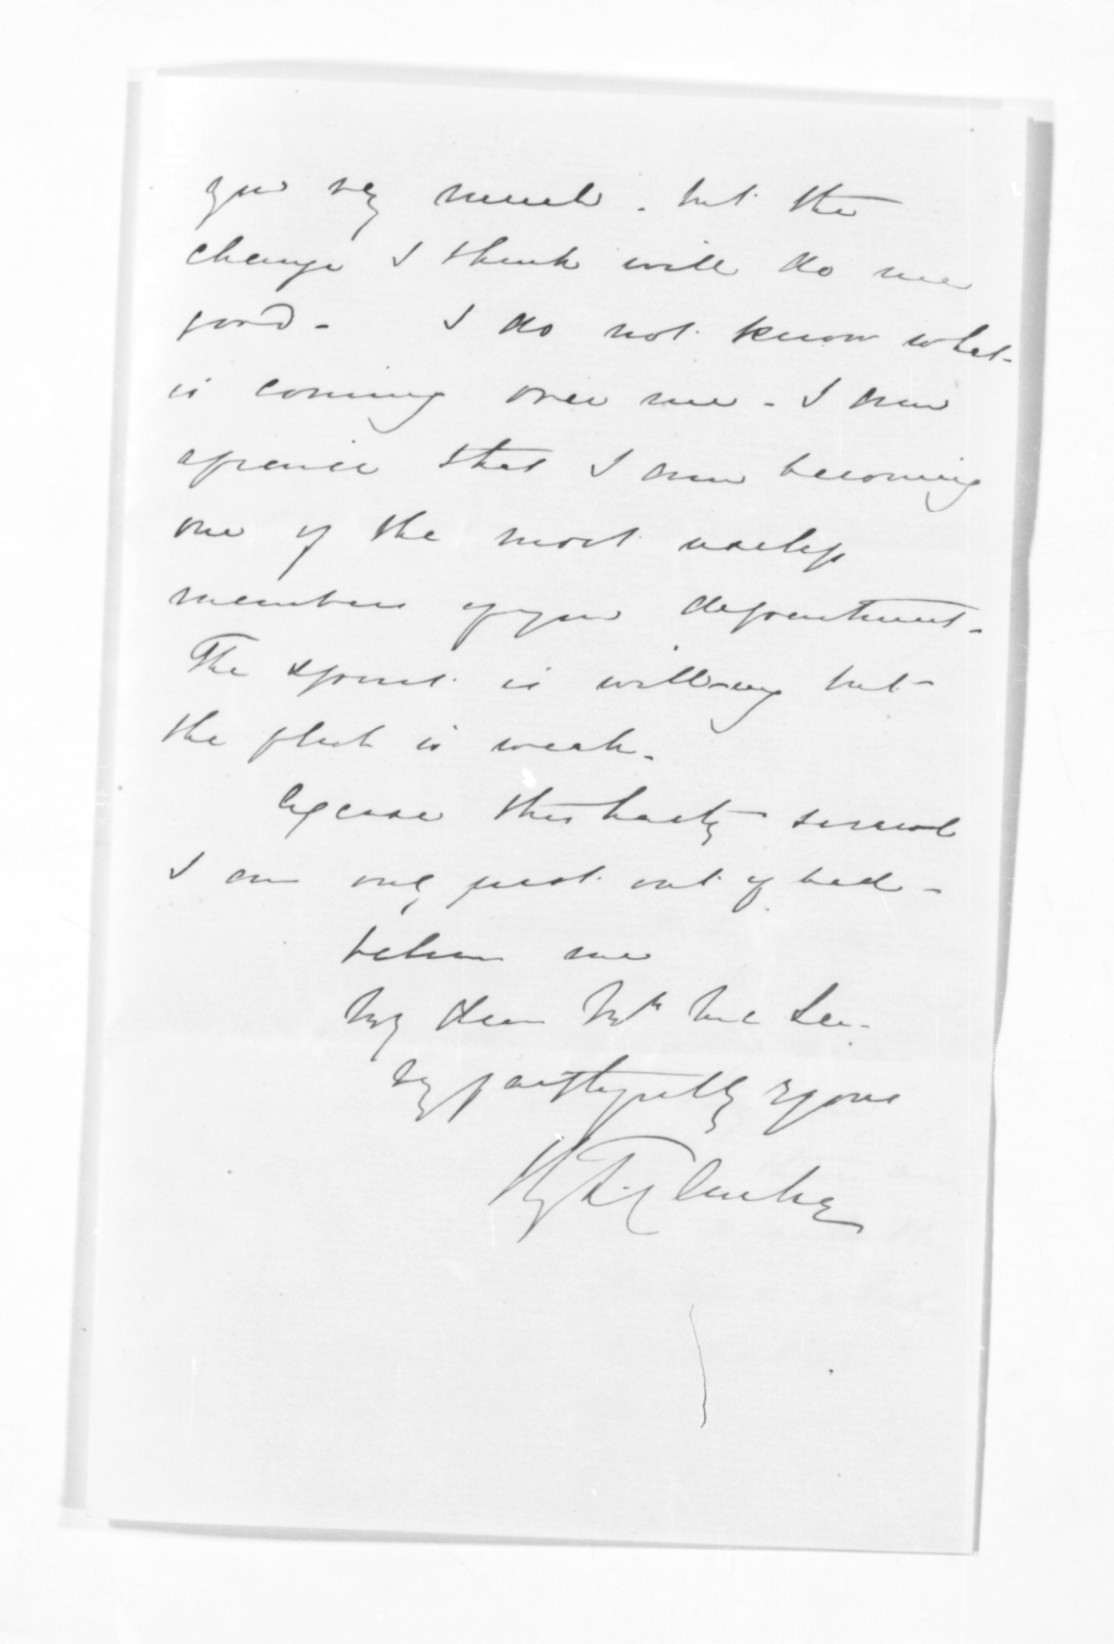 you very much. but the
change I think will do me
good - I do not know what
is coming over me - I am
afraid that I am becoming
one of the most useless
members of your department.
The spirit is willing but
the flesh is weak.
Excuse this hasty scrawl
I am only just out of bed -
believe me
My dear Mr McLean
Vy faithfully yours
Hy T. Clarke